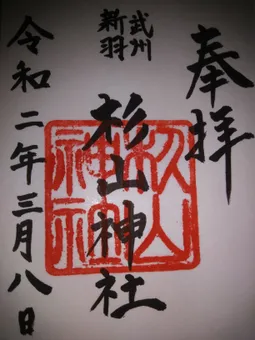 奉拝
武州
新羽
杉山神社
杉山
神社
令和二年三月八日